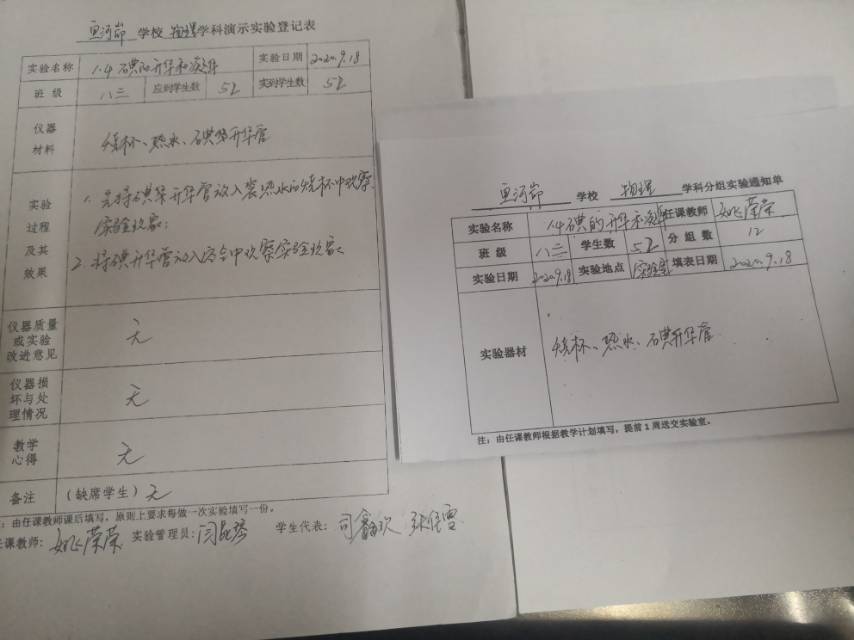 鱼河峁 学校 物理 学科演示实验登记表
实验名称 1.4碘的升华和凝华 实验日期 2020.9.18
班级 八三 应到学生数 52 实到学生数 52
仪器材料 烧杯、热水、碘升华管
实验过程及其效果
1. 先将碘升华管放入装热水的烧杯中观察
实验现象;
2. 将碘升华管放入冷水中观察实验现象
仪器质量或实验改进意见 无
仪器损坏与处理情况 无
教学心得 无
备注 (缺席学生) 无
:由任课教师课后填写,原则上要求每做一次实验填写一份。
任课教师: 姚荣荣 实验管理员: 闫 学生代表: 司鑫欣
鱼河峁 学校 物理 学科分组实验通知单
实验名称 1.4碘的升华和凝华 任课教师 姚荣荣
班级 八三 学生数 52 分组数 12
实验日期 2020.9.18 实验地点 实验室 填表日期 2020.9.18
实验器材 烧杯、热水、碘升华管
注:由任课教师根据教学计划填写,提前1周送交实验室。